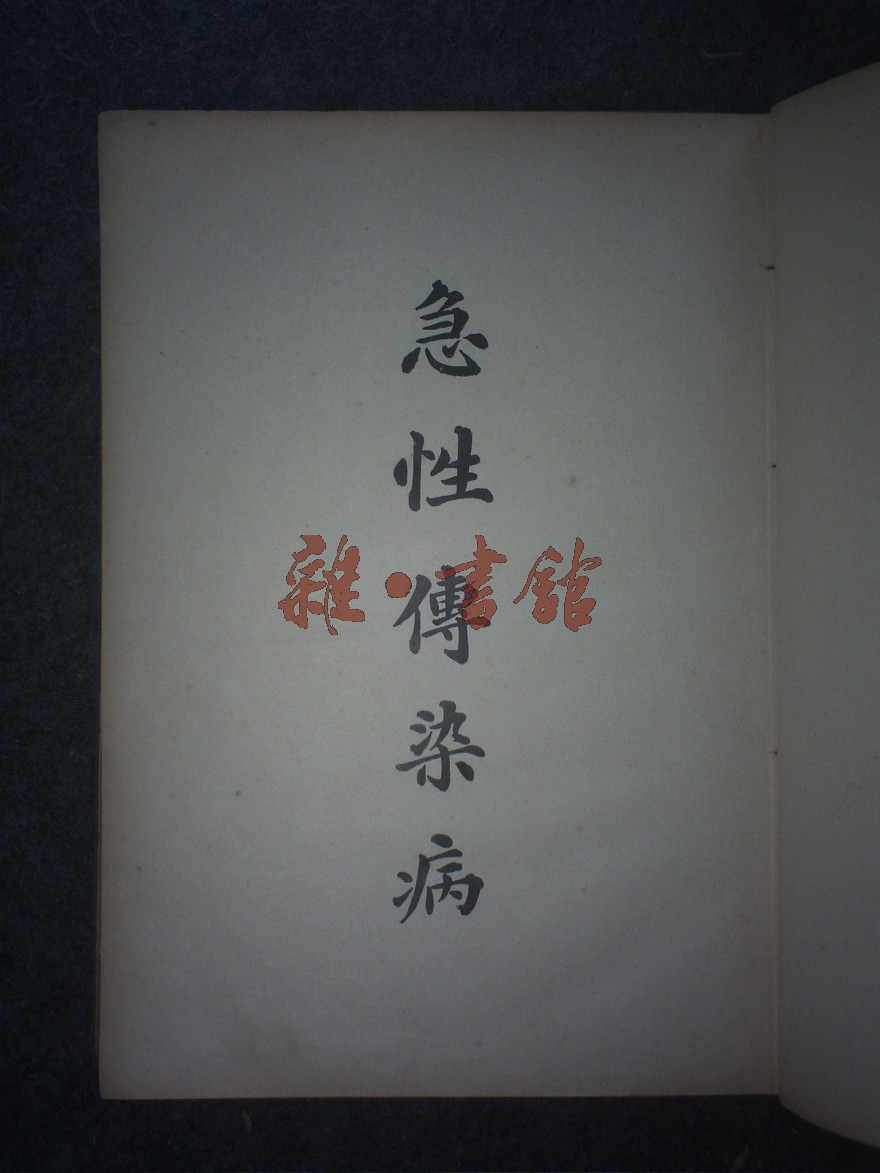 急性傳染病
雜·書館